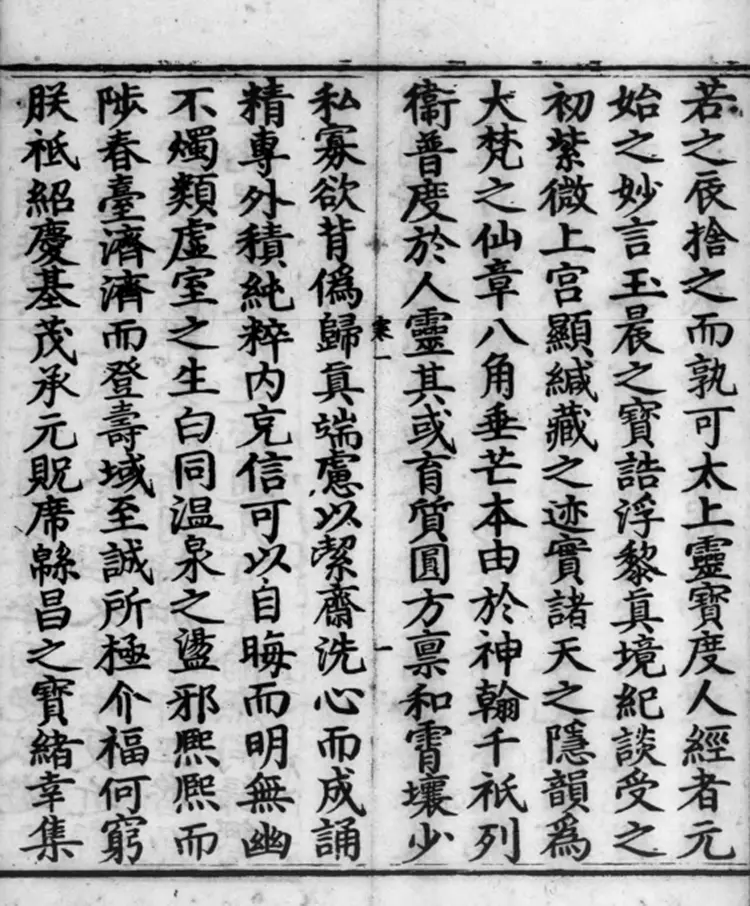 若之辰捨之而孰可太上靈寶度人經者元
始之妙言玉晨之寶誥浮黎真境紀談受之
初紫微上宮顯緘藏之迹實諸天之隱韻為
大梵之仙章八角垂芒本由於神翰千祇列
衞普度於人靈其或育質圓方禀和霄壤少
寒一
一
私寡欲背僞歸真端慮以絜齋洗心而成誦
精專外積純粹内充信可以自晦而明無幽
不燭類虛室之生白同温泉之盪邪熙熙而
陟春臺濟濟而登壽域至誠所極介福何窮
朕祇紹慶基茂承元貺席緜昌之寶緒幸集